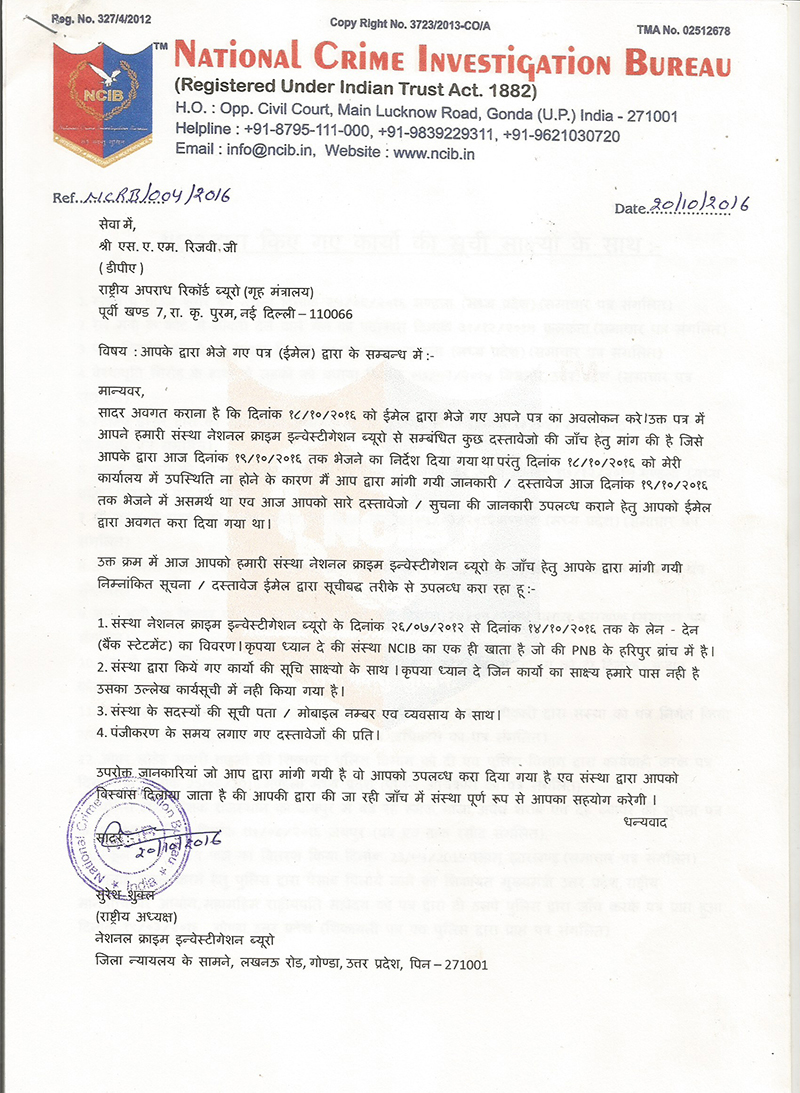 Reg. No. 327/4/2012
Copy Right No. 3723/2013-CO/A
TMA No. 02512678
TM
NCIB
NATIONAL CRIME INVESTIGATION BUREAU
(Registered Under Indian Trust Act. 1882)
H.O. : Opp. Civil Court, Main Lucknow Road, Gonda (U.P.) India - 271001
Helpline : +91-8795-111-000, +91-9839229311, +91-9621030720
Email : info@ncib.in, Website : www.ncib.in
Ref..NCRB/004/2016
Date..20/10/2016
सेवा में,
श्री एस. ए. एम. रिजवी जी
( डीपीए )
राष्ट्रीय अपराध रिकॉर्ड ब्यूरो (गृह मंत्रालय)
पूर्वी खण्ड 7, रा. कृ. पुरम, नई दिल्ली – 110066
विषय : आपके द्वारा भेजे गए पत्र (ईमेल) द्वारा के सम्बन्ध में :-
मान्यवर,
सादर अवगत कराना है कि दिनांक १८/१०/२०१६ को ईमेल द्वारा भेजे गए अपने पत्र का अवलोकन करे।उक्त पत्र में
आपने हमारी संस्था नेशनल क्राइम इन्वेस्टीगेशन ब्यूरो से सम्बंधित कुछ दस्तावेजो की जाँच हेतु मांग की है जिसे
आपके द्वारा आज दिनांक १९/१०/२०१६ तक भेजने का निर्देश दिया गया था परंतु दिनांक १८/१०/२०१६ को मेरी
कार्यालय में उपस्थिति ना होने के कारण मैं आप द्वारा मांगी गयी जानकारी / दस्तावेज आज दिनांक १९/१०/२०१६
तक भेजने में असमर्थ था एव आज आपको सारे दस्तावेजो / सुचना की जानकारी उपलव्ध कराने हेतु आपको ईमेल
द्वारा अवगत करा दिया गया था।
उक्त क्रम में आज आपको हमारी संस्था नेशनल क्राइम इन्वेस्टीगेशन ब्यूरो के जाँच हेतु आपके द्वारा मांगी गयी
निम्नांकित सूचना / दस्तावेज ईमेल द्वारा सूचीबद्ध तरीके से उपलव्ध करा रहा हू :-
1. संस्था नेशनल क्राइम इन्वेस्टीगेशन ब्यूरो के दिनांक २६/०७/२०१२ से दिनांक १४/१०/२०१६ तक के लेन - देन
(बैंक स्टेटमेंट) का विवरण।कृपया ध्यान दे की संस्था NCIB का एक ही खाता है जो की PNB के हरिपुर ब्रांच में है।
2. संस्था द्वारा किये गए कार्यो की सूचि साक्ष्यो के साथ।कृपया ध्यान दे जिन कार्यो का साक्ष्य हमारे पास नही है
उसका उल्लेख कार्यसूची में नही किया गया है।
3. संस्था के सदस्यों की सूची पता / मोबाइल नम्बर एव व्यवसाय के साथ।
4. पंजीकरण के समय लगाए गए दस्तावेजों की प्रति।
उपरोक्त जानकारियां जो आप द्वारा मांगी गयी है वो आपको उपलब्ध करा दिया गया है एव संस्था द्वारा आपको
विस्वास दिलाया जाता है की आपकी द्वारा की जा रही जाँच में संस्था पूर्ण रूप से आपका सहयोग करेगी।
धन्यवाद
National Crime Investigation Bureau
India
सादर
20/10/2016
सुरेश शुक्ल
(राष्ट्रीय अध्यक्ष)
नेशनल क्राइम इन्वेस्टीगेशन ब्यूरो
जिला न्यायलय के सामने, लखनऊ रोड, गोण्डा, उत्तर प्रदेश, पिन – 271001